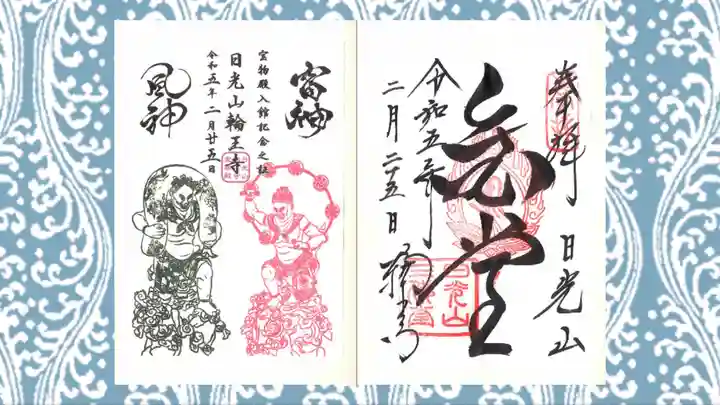 奉拝
日光山
三佛堂
令和五年
二月二十五日
輪王寺
雷神
宝物殿入館記念之証
日光山輪王寺
令和五年二月廿五日
風神